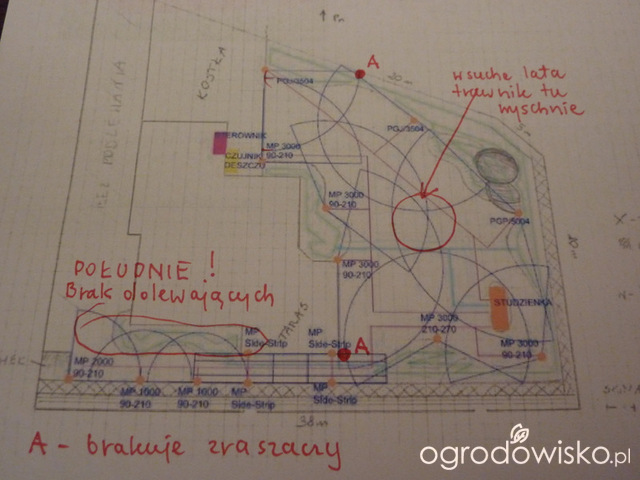 Pn
A
w suche lata
trawnik tu
wyschnie
KOSTKA
PGJ/3504
PGJ/3504
STEROWNIK
CZUJNIK
DESZCZU
MP 3000
90-210
MP 3000
90-210
PGP/5004
POŁUDNIE !
Brak dolewających
MP 3000
90-210
TARAS
STUDZIENKA
MP
Side-Strip
MP
Side-Strip
A
MP 3000
210-270
MP 3000
90-210
MP 2000
90-210
MP 1000
90-210
MP 1000
90-210
MP
Side-Strip
MP
Side-Strip
38m
A - brakuje zraszaczy
ogrodowisko.pl